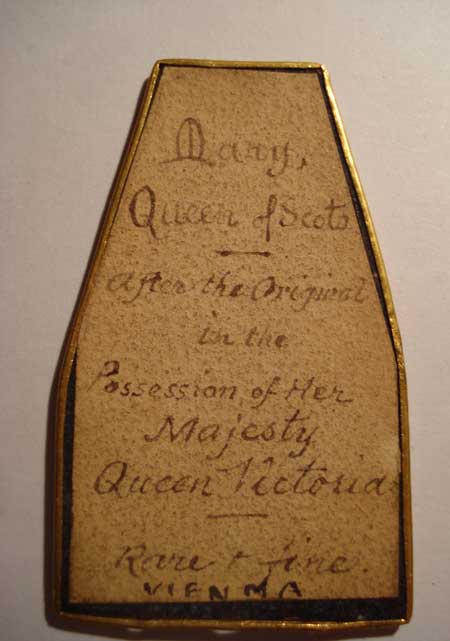 Mary,
Queen of Scots
After the Original
in the
Possession of Her
Majesty
Queen Victoria
Rare + fine.
VIENNA